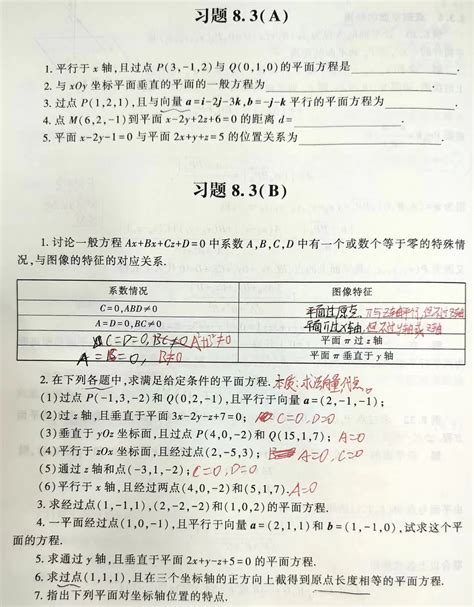 习题 8.3(A)
1. 平行于 x 轴,且过点 P(3,-1,2)与 Q(0,1,0)的平面方程是
2. 与 xOy 坐标平面垂直的平面的一般方程为
3. 过点 P(1,2,1),且与向量 a=i-2j-3k,b=-j-k 平行的平面方程为
4. 点 M(6,2,-1)到平面 x-2y+2z+6=0 的距离 d=
5. 平面 x-2y-1=0 与平面 2x+y+z=5 的位置关系为
习题 8.3(B)
1. 讨论一般方程 Ax+Bx+Cz+D=0 中系数 A,B,C,D 中有一个或数个等于零的特殊情
况,与图像的特征的对应关系.
系数情况 图像特征
C=0,ABD≠0 平面过原点, π与z轴平行,但不过z轴
A=D=0,BC≠0 平面π过x轴,但不过y轴或z轴
C=D=0, A²+B²≠0 平面 π 过 z 轴
A=C=0, B≠0 平面 π 垂直于 y 轴
2. 在下列各题中,求满足给定条件的平面方程. 本质:求法向量代点.
(1)过点 P(-1,3,-2)和 Q(0,2,-1),且平行于向量 a=(2,-1,-1);
(2)过 z 轴,且垂直于平面 3x-2y-z+7=0; C=0,D=0
(3)垂直于 yOz 坐标面,且过点 P(4,0,-2)和 Q(15,1,7); A=0
(4)平行于 zOx 坐标面,且经过点(2,-5,3); A=0,C=0
(5)通过 z 轴和点(-3,1,-2); C=0,D=0
(6)平行于 x 轴,且经过两点(4,0,-2)和(5,1,7). A=0
3. 求经过点(1,-1,1),(2,-2,-2)和(1,0,2)的平面方程.
4. 一平面经过点(1,0,-1),且平行于向量 a=(2,1,1)和 b=(1,-1,0),试求这个平
面的方程.
5. 求通过 y 轴,且垂直于平面 2x+y-z+5=0 的平面方程.
6. 求过点(1,1,1),且在三个坐标轴的正方向上截得到原点长度相等的平面方程.
7. 指出下列平面对坐标轴位置的特点.